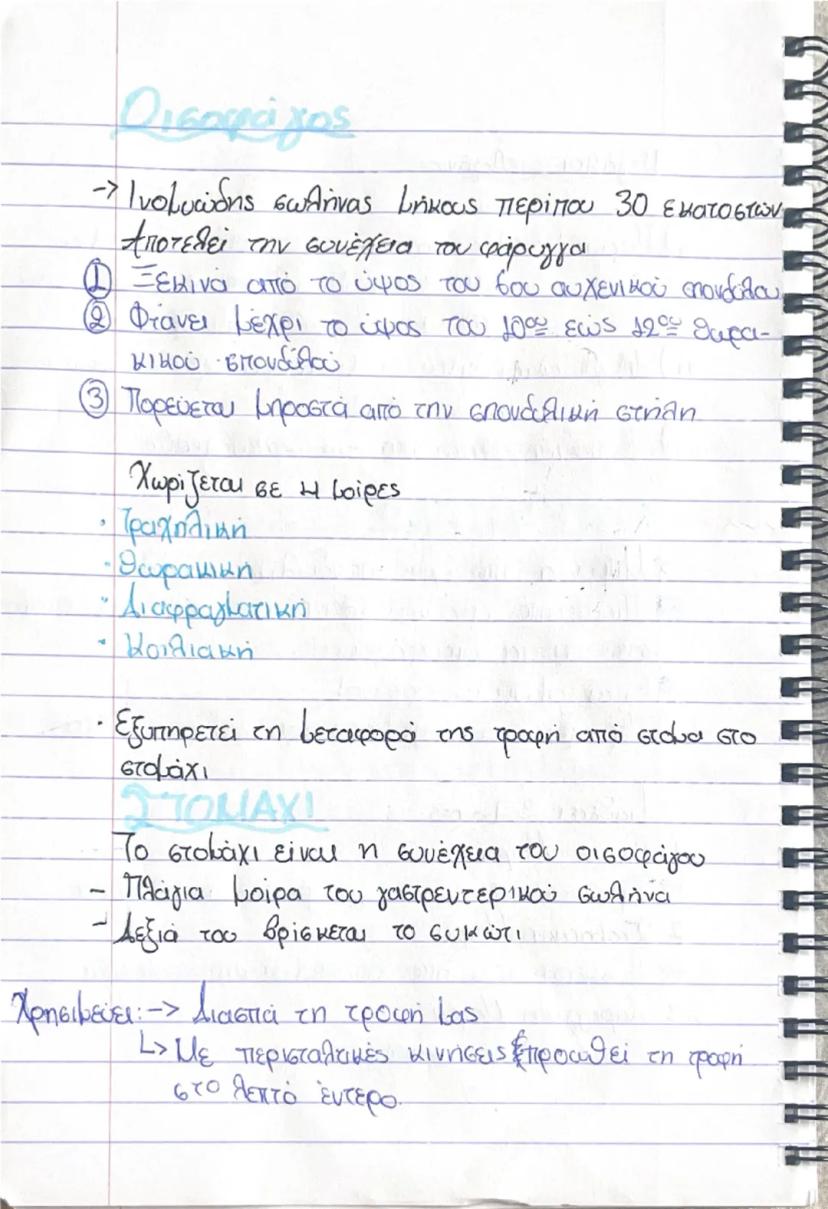 Οισοφάγος
-> Ινομυώδης σωλήνας μήκους περίπου 30 εκατοστών
Αποτελεί την συνέχεια του φάρυγγα
① Ξεκινά από το ύψος του 6ου αυχενικού σπονδύλου
② Φτάνει μέχρι το ύψος του 10ου εώς 12ου θωρα-
κικού σπονδύλού
③ Πορεύεται μπροστά από την σπονδυλική στήλη
Χωρίζεται σε 4 μοίρες
· Τραχηλική
· Θωρακική
· Διαφραγματική
· Κοιλιακή
· Εξυπηρετεί τη μεταφορά της τραφή από στόμα στο
στομάχι
ΣΤΟΜΑΧΙ
Το στομάχι είναι η συνέχεια του οισοφάγου
- Πλάγια μοίρα του γαστρεντερικού σωλήνα
- Δεξιά του βρίσκεται το συκώτι
Χρησιμεύει: -> Διασπά τη τροφή μας
↳ Με περισταλτικές κινήσεις προωθεί τη τραφή
στο λεπτό έντερο.